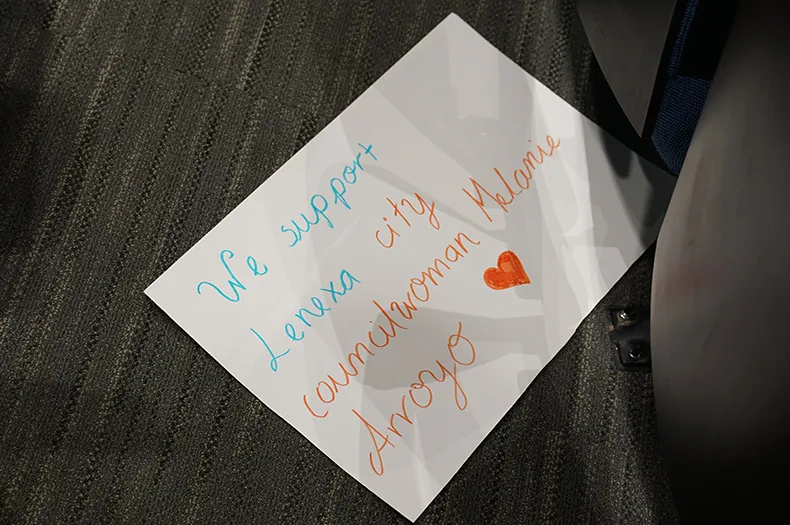 We support
Lenexa city
councilwoman Melanie
Arroyo